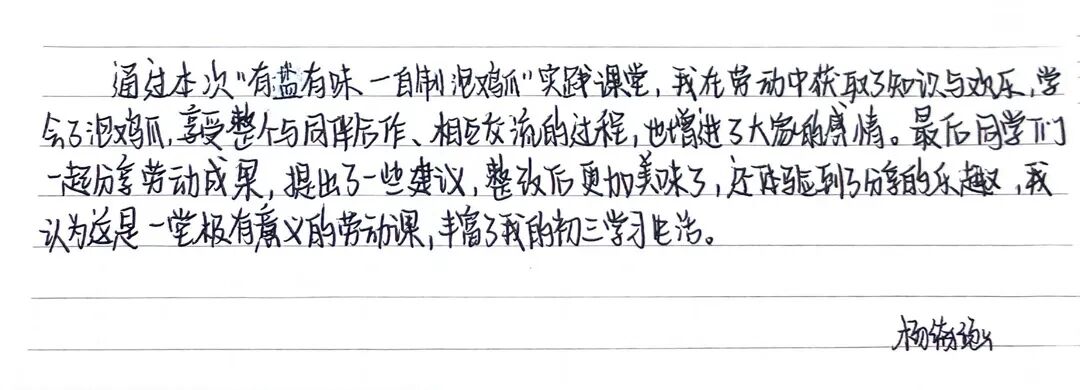 通过本次"有盐有味 一自制泡鸡爪"实践课堂,我在劳动中获取了知识与欢乐,学
会了泡鸡爪,享受整个与同伴合作、相互交流的过程,也增进了大家的感情。最后同学们
一起分享劳动成果,提出了一些建议,整改后更加美味了,还体验到了分享的乐趣,我
认为这是一堂极有意义的劳动课,丰富了我的初三学习生活。
杨